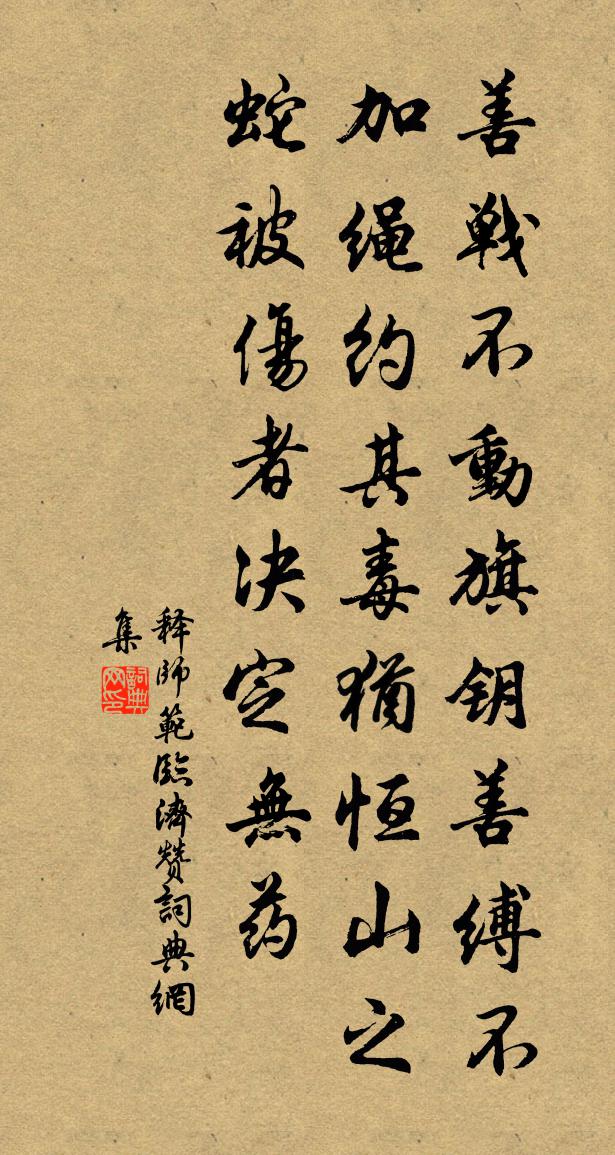 善戰不動旗钥善缚不
加绳约其毒猶恒山之
蛇被傷者决定無药
释師範臨濟赞詞典網
集
詞典网印